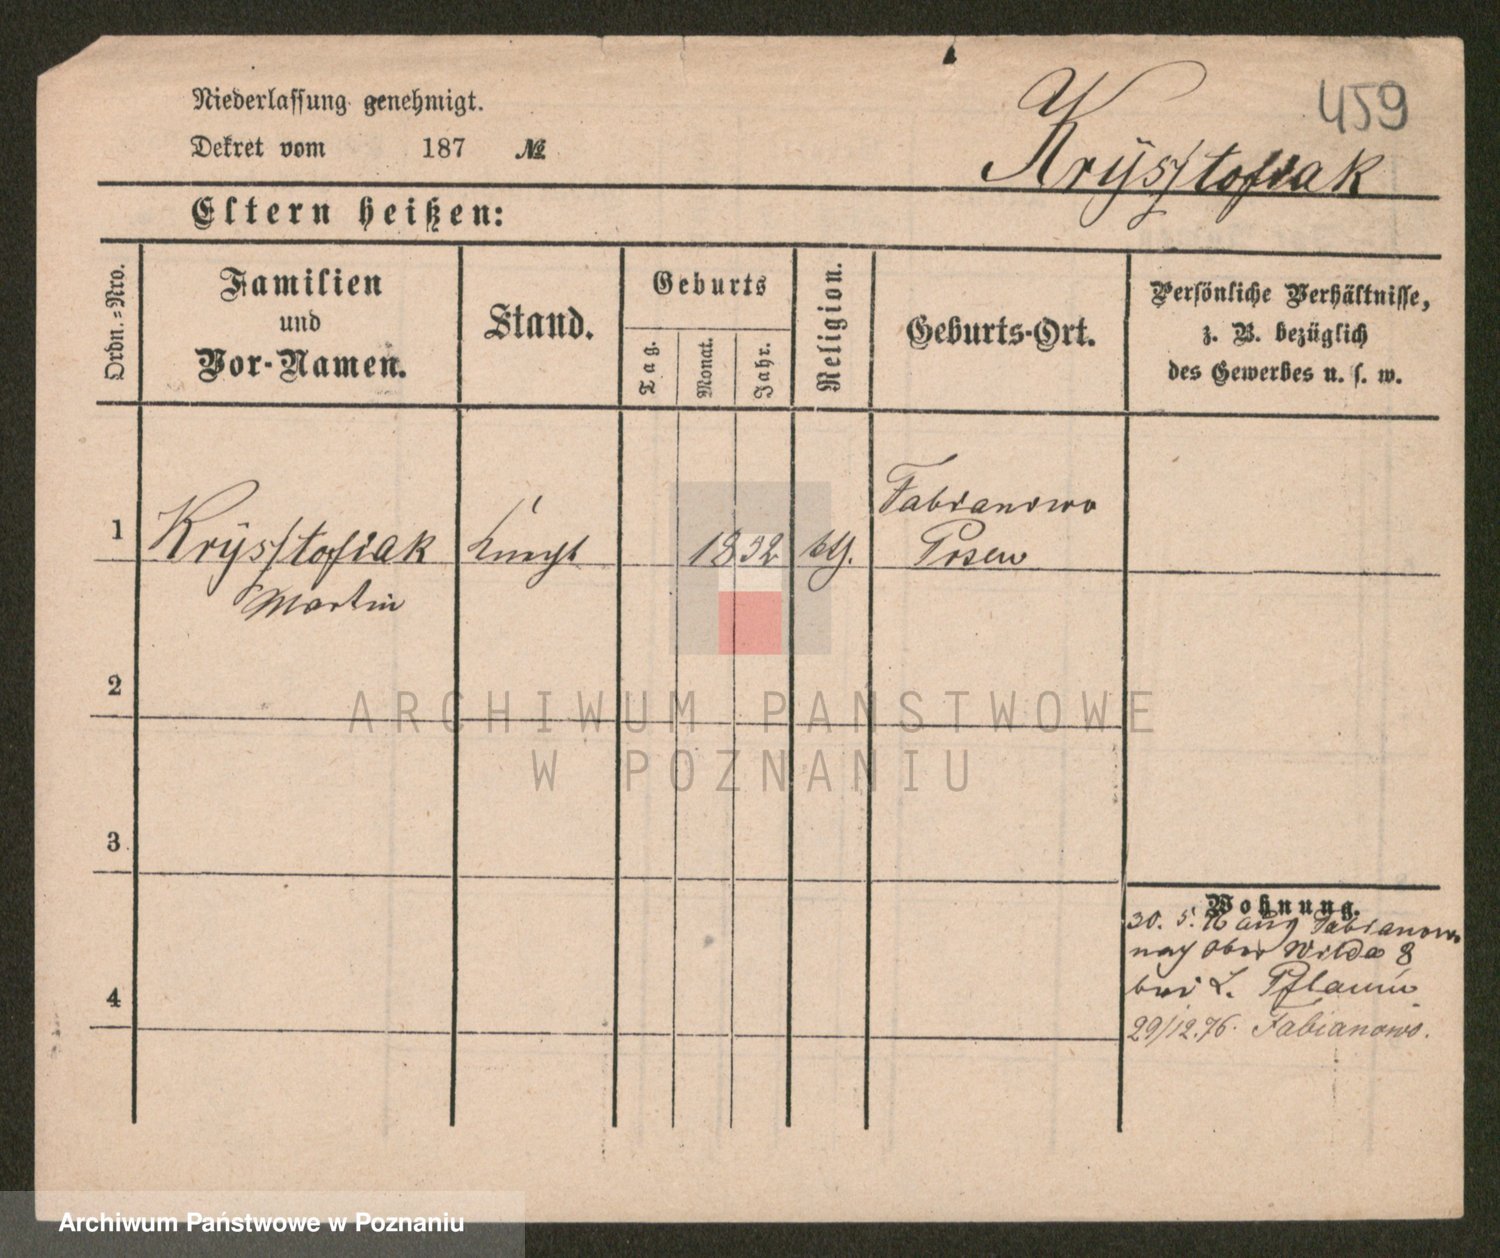 459
Niederlassung genehmigt.
Krysstofiak
Dekret vom 187 №
Eltern heißen:
Ordn.=Nro.
Familien
und
Vor-Namen.
Stand.
Geburts
Tag.
Monat.
Jahr.
Religion.
Geburts-Ort.
Persönliche Verhältnisse,
z. B. bezüglich
des Gewerbes u. s. w.
1
Krysstofiak
Martin
Knecht
1832
kth.
Fabianowo
Posen
2
ARCHIWUM PAŃSTWOWE
W POZNANIU
3
4
Wohnung.
30. 5. 76 aus Fabianowo
nach Ober Wilda 8
bei L. Pflaum
29/12.76. Fabianowo.
Archiwum Państwowe w Poznaniu